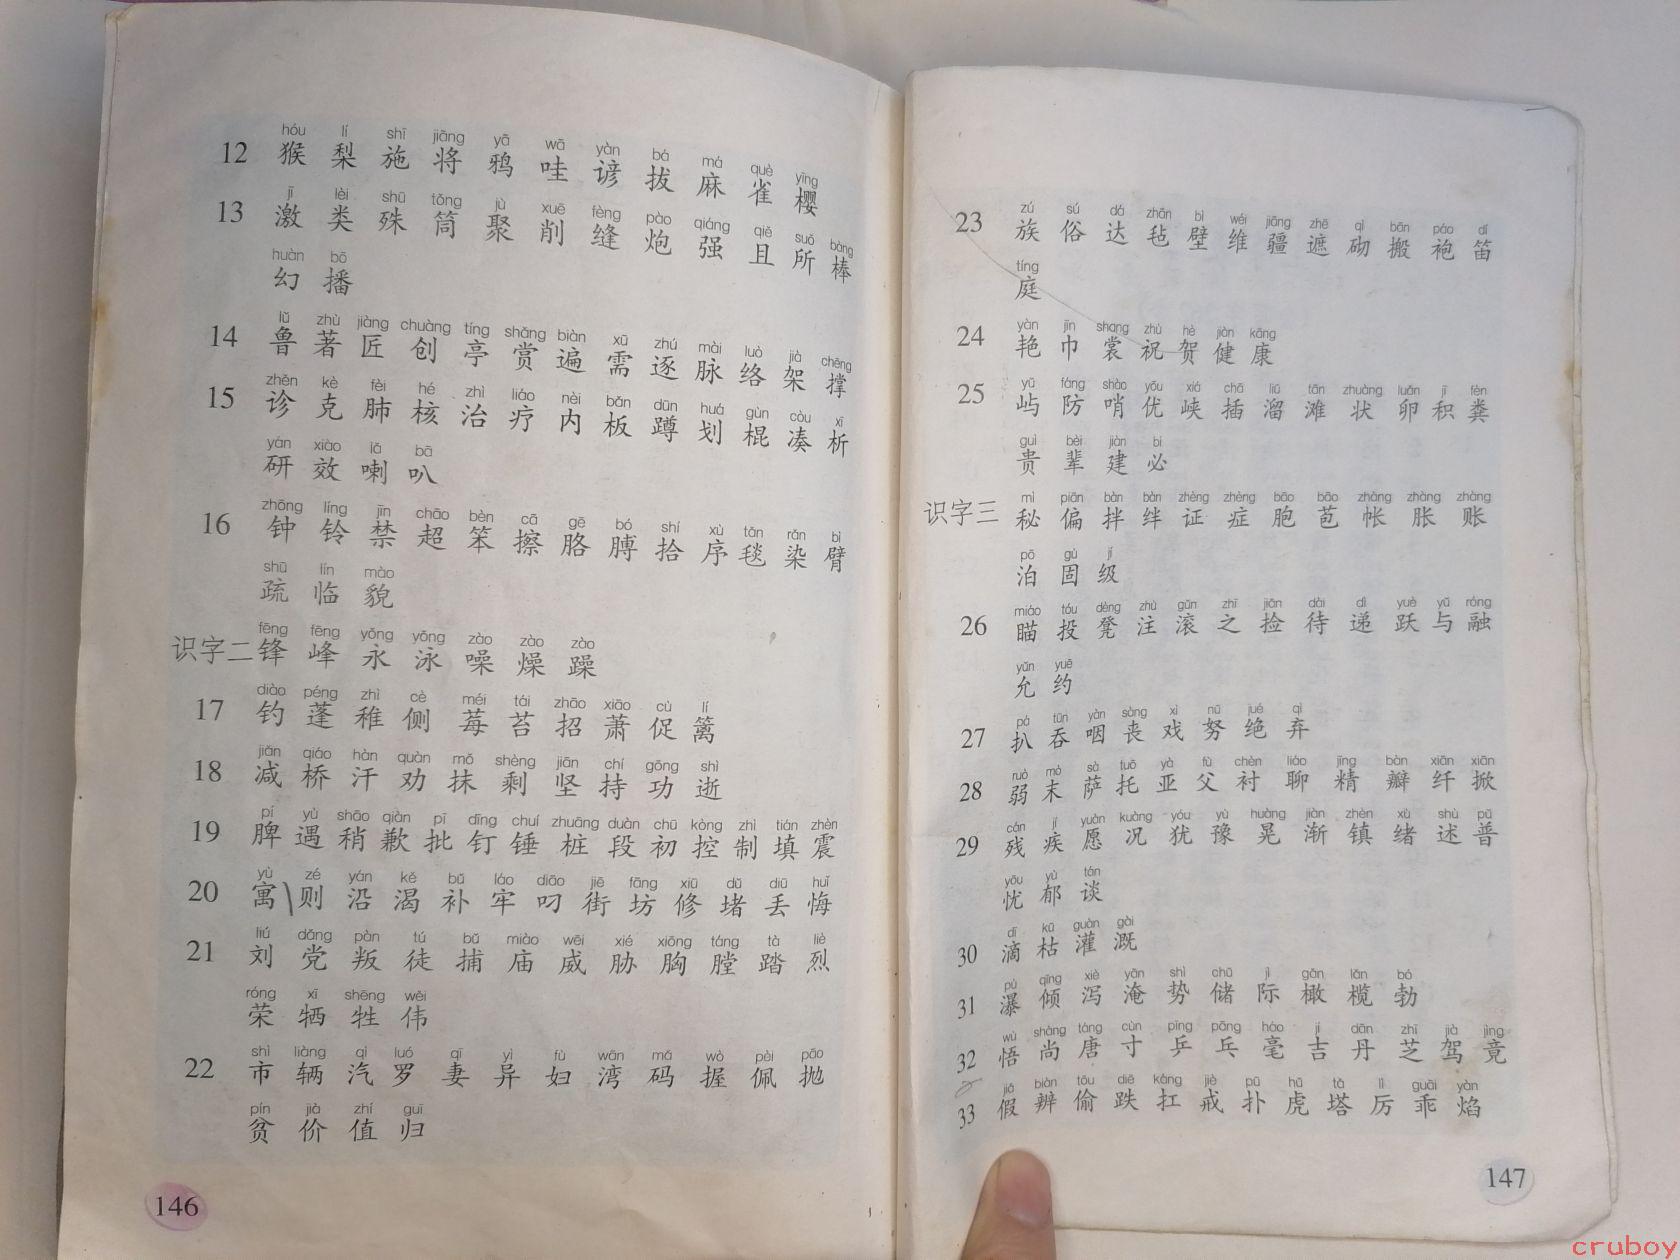 hóu lí shī jiāng yā wā yàn bá má què yīng
12 猴 梨 施 将 鸦 哇 谚 拔 麻 雀 樱
jī lèi shū tǒng jù xuē fèng pào qiáng qiě suǒ bàng
13 激 类 殊 筒 聚 削 缝 炮 强 且 所 棒
huàn bō
幻 播
lǔ zhù jiàng chuàng tíng shǎng biàn xū zhú mài luò jià chēng
14 鲁 著 匠 创 亭 赏 遍 需 逐 脉 络 架 撑
zhěn kè fèi hé zhì liáo nèi bǎn dūn huá gùn còu xī
15 诊 克 肺 核 治 疗 内 板 蹲 划 棍 凑 析
yán xiào lǎ bā
研 效 喇 叭
zhōng líng jīn chāo bèn cā gē bó shí xù tǎn rǎn bì
16 钟 铃 禁 超 笨 擦 胳 膊 拾 序 毯 染 臂
shū lín mào
疏 临 貌
fēng fēng yǒng yǒng zào zào zào
识字二 锋 峰 永 泳 噪 燥 躁
diào péng zhì cè méi tái zhāo xiāo cù lí
17 钓 蓬 稚 侧 莓 苔 招 萧 促 篱
jiǎn qiáo hàn quàn mǒ shèng jiān chí gōng shì
18 减 桥 汗 劝 抹 剩 坚 持 功 逝
pí yù shāo qiàn pī dīng chuí zhuāng duàn chū kòng zhì tián zhèn
19 脾 遇 稍 歉 批 钉 锤 桩 段 初 控 制 填 震
yù zé yán kě bǔ láo diāo jiē fāng xiū dǔ diū huǐ
20 寓 则 沿 渴 补 牢 叼 街 坊 修 堵 丢 悔
liú dǎng pàn tú bǔ miào wēi xié xiōng táng tà liè
21 刘 党 叛 徒 捕 庙 威 胁 胸 膛 踏 烈
róng xī shēng wěi
荣 牺 牲 伟
shì liàng qì luó qī yì fù wān mǎ wò pèi pāo
22 市 辆 汽 罗 妻 异 妇 湾 码 握 佩 抛
pín jià zhí guī
贫 价 值 归
146
zú sú dá zhān bì wéi jiāng zhē qì bān páo dí
23 族 俗 达 毡 壁 维 疆 遮 砌 搬 袍 笛
tíng
庭
yàn jīn shang zhù hè jiàn kāng
24 艳 巾 裳 祝 贺 健 康
yǔ fáng shào yōu xiá chā liū tān zhuàng luǎn jī fèn
25 屿 防 哨 优 峡 插 溜 滩 状 卵 积 粪
guì bèi jiàn bì
贵 辈 建 必
mì piān bàn bàn zhèng zhèng bāo bāo zhàng zhàng zhàng
识字三 秘 偏 拌 绊 证 症 胞 苞 帐 胀 账
pō gù jí
泊 固 级
miáo tóu dèng zhù gǔn zhī jiǎn dài dì yuè yǔ róng
26 瞄 投 凳 注 滚 之 捡 待 递 跃 与 融
yǔn yuē
允 约
pá tūn yàn sàng xì nǔ jué qì
27 扒 吞 咽 丧 戏 努 绝 弃
ruò mò sà tuō yà fù chèn liáo jīng bàn xiān xiān
28 弱 末 萨 托 亚 父 衬 聊 精 瓣 纤 掀
cán jí yuàn kuàng yóu yù huàng jiàn zhèn xù shù pǔ
29 残 疾 愿 况 犹 豫 晃 渐 镇 绪 述 普
yōu yù tán
忧 郁 谈
dī kū guàn gài
30 滴 枯 灌 溉
pù qīng xiè yān shì chǔ jì gǎn lǎn bó
31 瀑 倾 泻 淹 势 储 际 橄 榄 勃
wù shàng táng cùn pīng pāng háo jí dān zhī jià jìng
32 悟 尚 唐 寸 乒 乓 毫 吉 丹 芝 驾 竟
jiǎ biàn tōu diē káng jiè pū hǔ tǎ lì guāi yàn
33 假 辨 偷 跌 扛 戒 扑 虎 塔 厉 乖 焰
147
cruboy